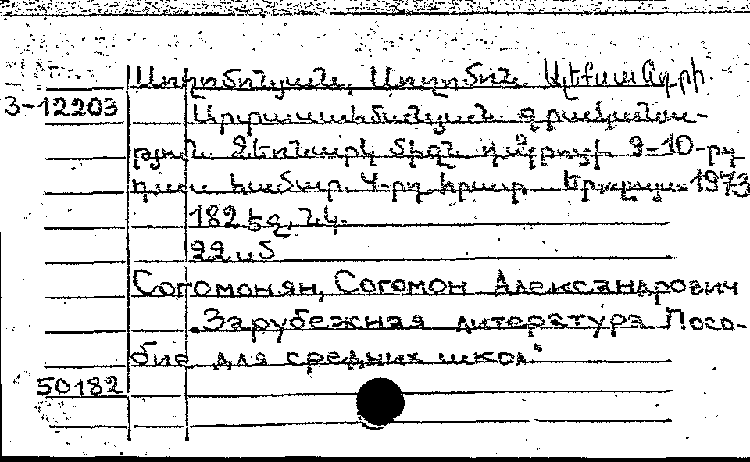 Սողոմոնյան, Սողոմոն Ալեքսանդրի.
3-12203
Արտասահմանյան գրականու-
թյուն. Ձեռնարկ միջն. դպրոցի 9-10-րդ
դաս. համար. 4-րդ հրատ. Երևան 1973
182 էջ, նկ.
22 սմ
Согомонян, Согомон Александрович
"Зарубежная литература Посо-
бие для средних школ."
50182